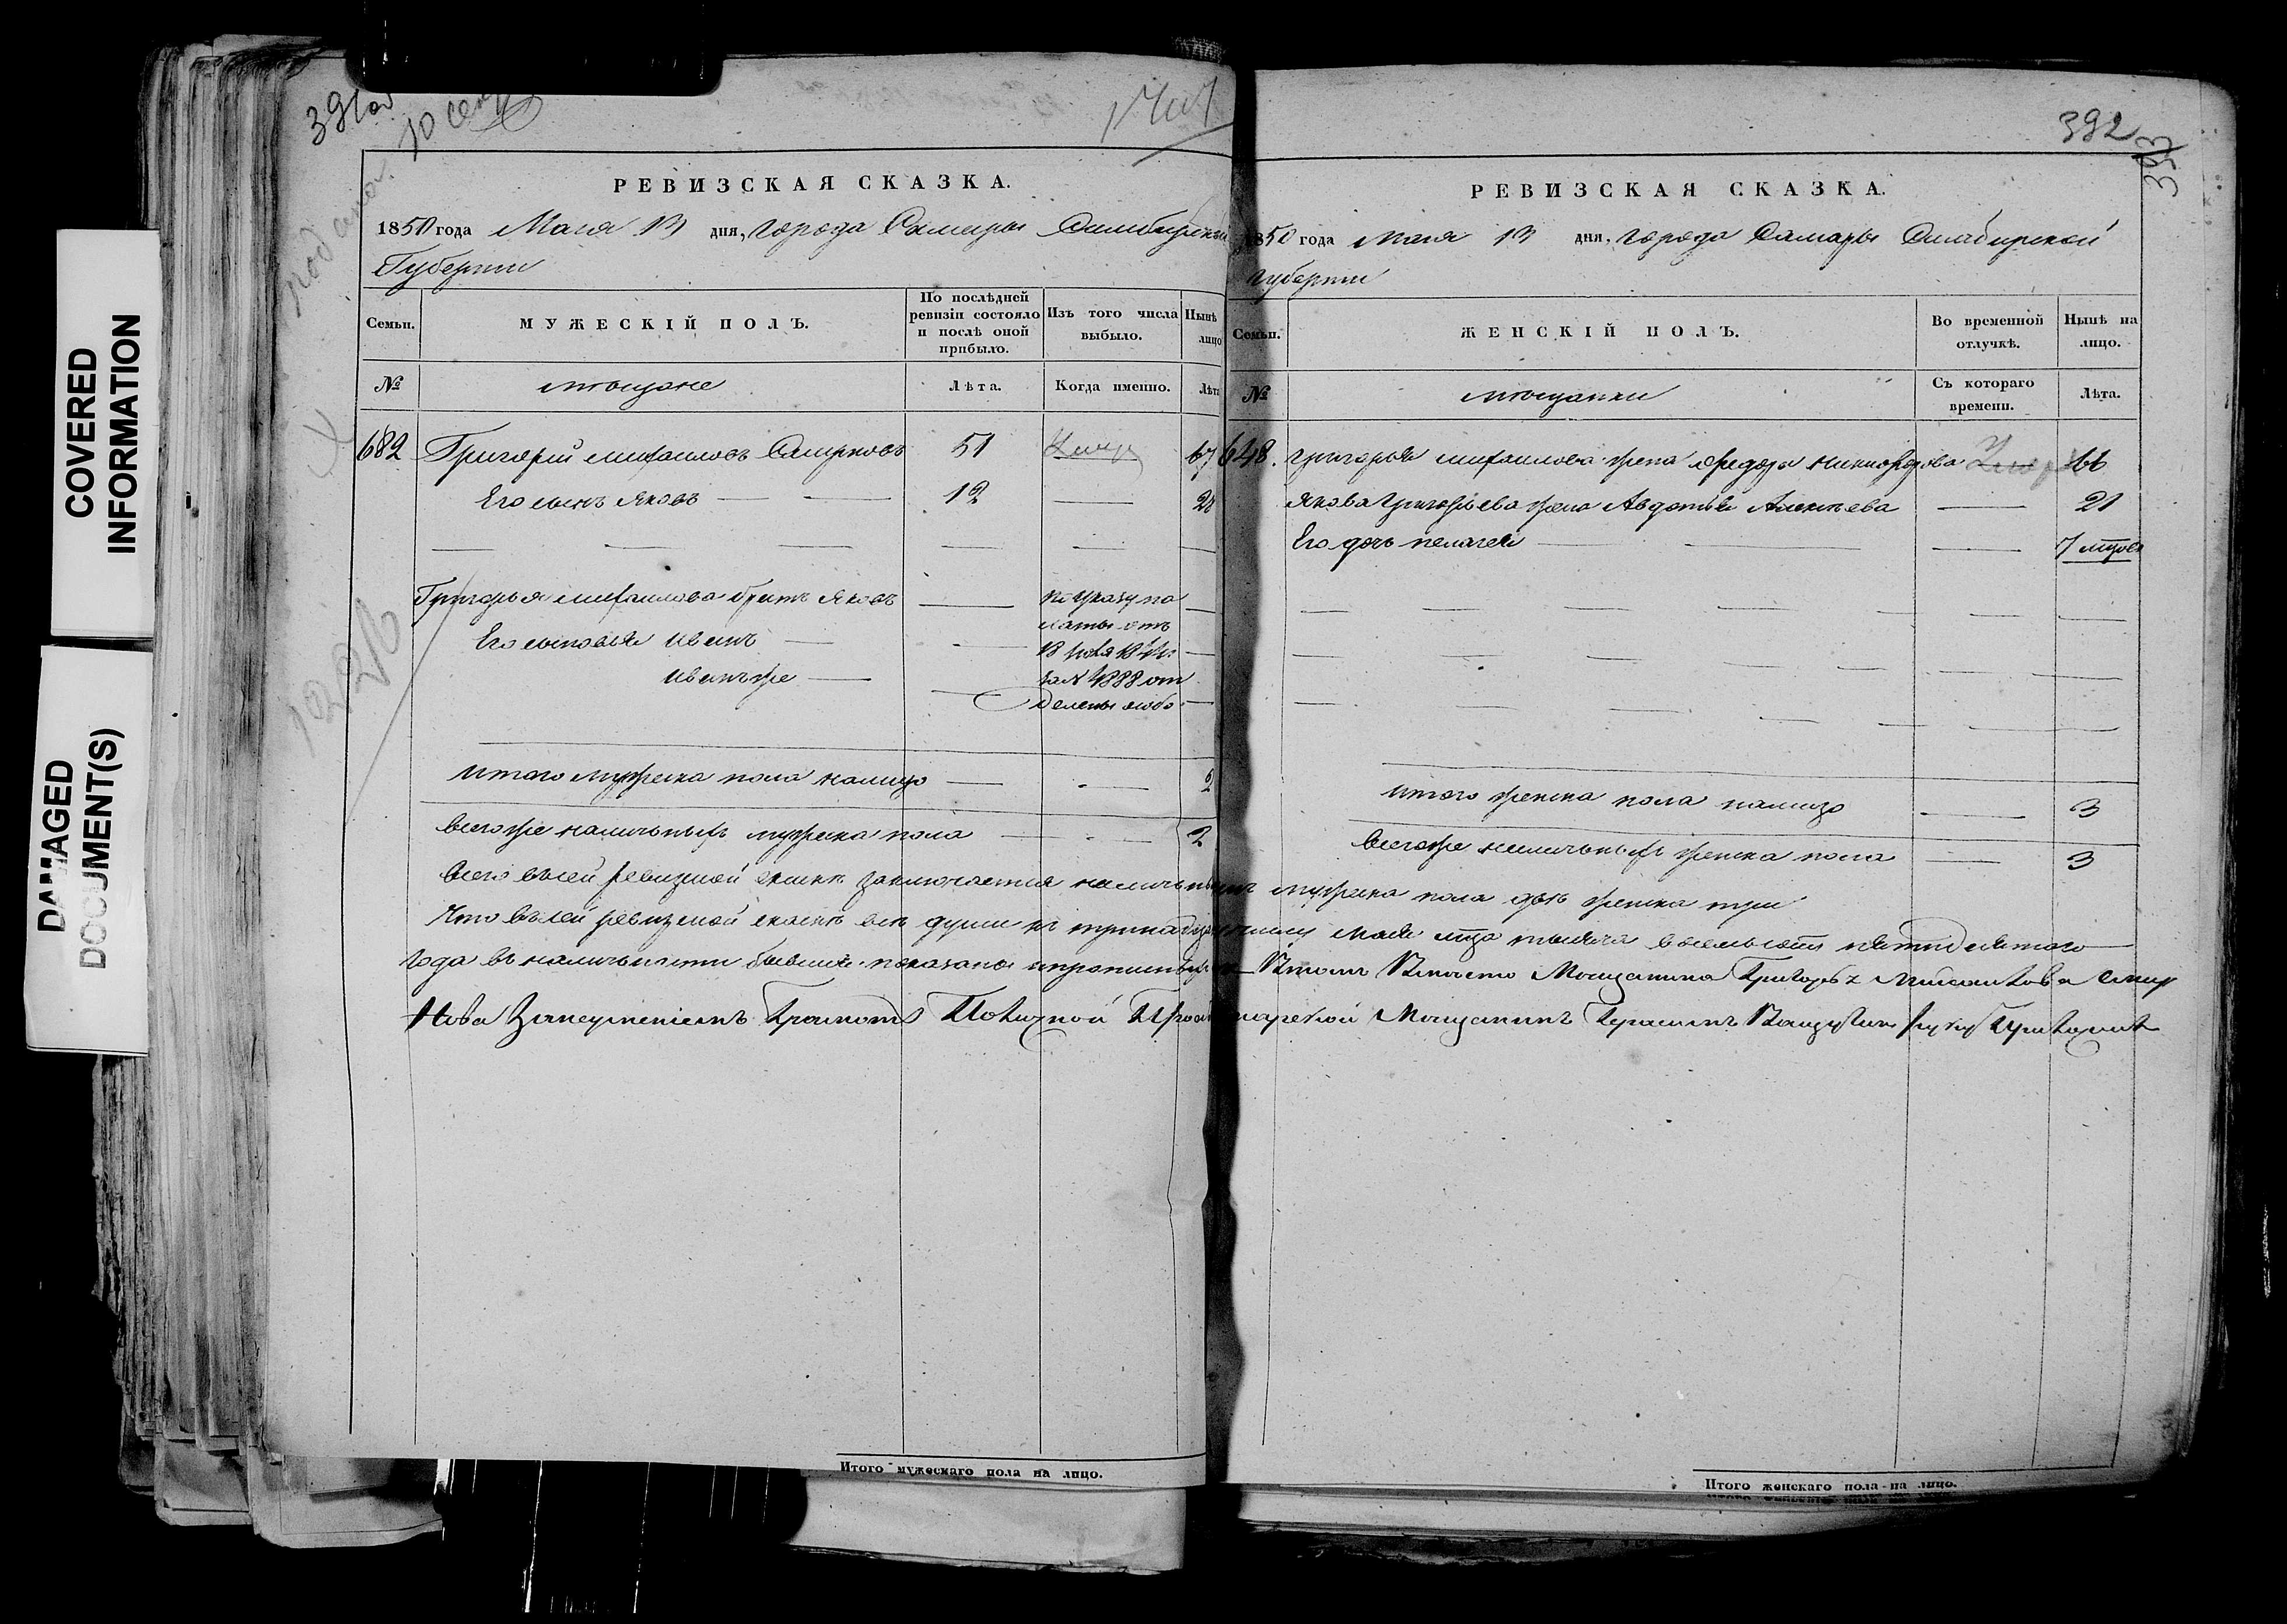 COVERED
INFORMATION
DAMAGED
DOCUMENT(S)
391об
10 сен
РЕВИЗСКАЯ СКАЗКА.
1850 года Маия 13 дня, города Самары Симбирской
Губернии
Семьи.
МУЖЕСКІЙ ПОЛЪ.
По послѣдней ревизіи состояло и послѣ оной прибыло.
Изъ того числа выбыло.
Нынѣ лицо
№ мѣщане Лѣта. Когда именно. Лѣт
682 Григорий михаиловъ Смирновъ 51 67
Его сынъ Яковъ 12 28
Григорья михаилова братъ Яковъ
Его сыновья Иванъ
Иванъ же
по указу па
латы отъ
за № 4888 от
делены особо
итого мужеска пола налицо 2
всего же наличныхъ мужеска пола 2
392
393
РЕВИЗСКАЯ СКАЗКА.
1850 года Маия 13 дня, города Самары Симбирской
губернии
Семьи.
ЖЕНСКІЙ ПОЛЪ.
Во временной отлучкѣ.
Нынѣ на лицо.
№ мѣщанки Съ котораго времени. Лѣта.
648. Григорья михаилова жена Федора никифорова 66
Якова Григорьева жена Авдотья Алексѣева 21
Его дочь пелагея 7 мцовъ
итого женска пола налицо 3
всего же наличныхъ женска пола 3
всего въ сей ревизкой скаскѣ заключается наличныхъ мужеска пола двѣ женска три
Что въ сей ревизской скаскѣ всѣ души къ тринадцатому числу Маия мца тысяча восемьсотъ пятидесятаго
года въ наличности бывшия показаны и прописныхъ Втомъ Вместо Мещанина Григорья Михайлова Смир
Нова Занеумениемъ Грамоте Поличной Прозбе Самарской Мещанинъ Герасимъ руку Приложилъ
Итого мужескаго пола на лицо.
Итого женскаго пола на лицо.